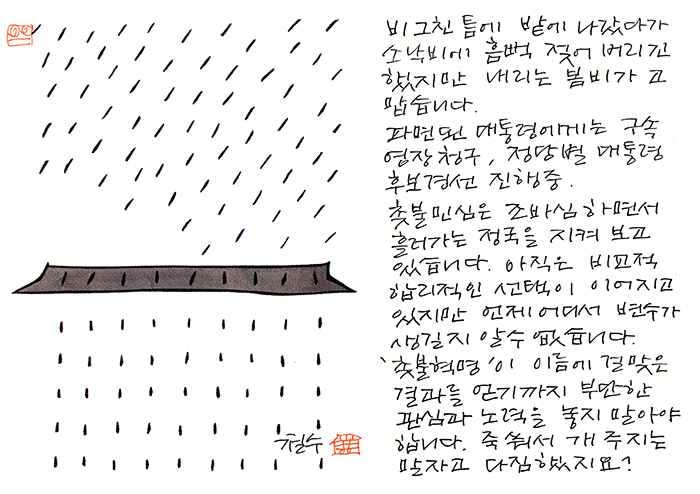 비 그친 틈에 밭에 나갔다가
소낙비에 흠뻑 젖어 버리긴
했지만 내리는 봄비가 고
맙습니다.
파면된 대통령에게는 구속
영장청구, 정당별 대통령
후보경선 진행중.
촛불민심은 조바심하면서
흘러가는 정국을 지켜 보고
있습니다. 아직은 비교적
합리적인 선택이 이어지고
있지만 언제 어디서 변수가
생길지 알 수 없습니다.
'촛불혁명'이 이름에 걸맞은
결과를 얻기까지 부단한
관심과 노력을 놓지 말아야
합니다. 죽 쒀서 개 주지는
말자고 다짐했지요?
철수